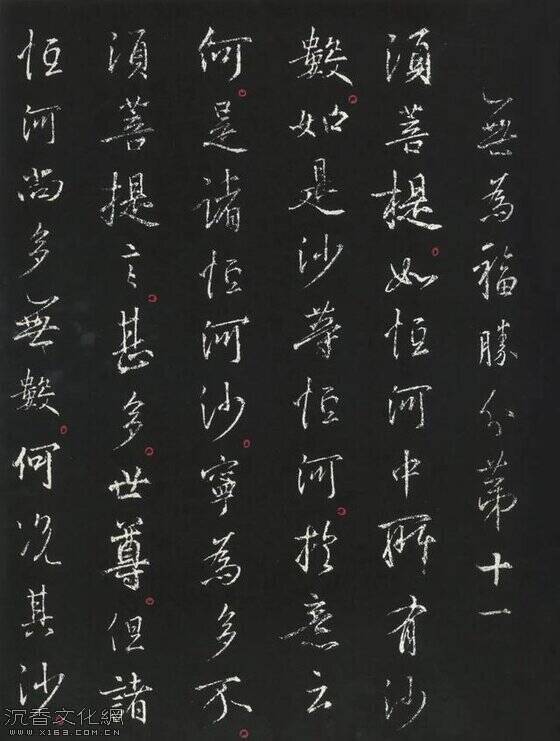 無為福勝分第十一
須菩提如恒河中所有沙
數如是沙等恒河於意云
何是諸恒河沙寧為多不
須菩提言甚多世尊但諸
恒河尚多無數何況其沙
沉香文化網
www.x163.com.cn